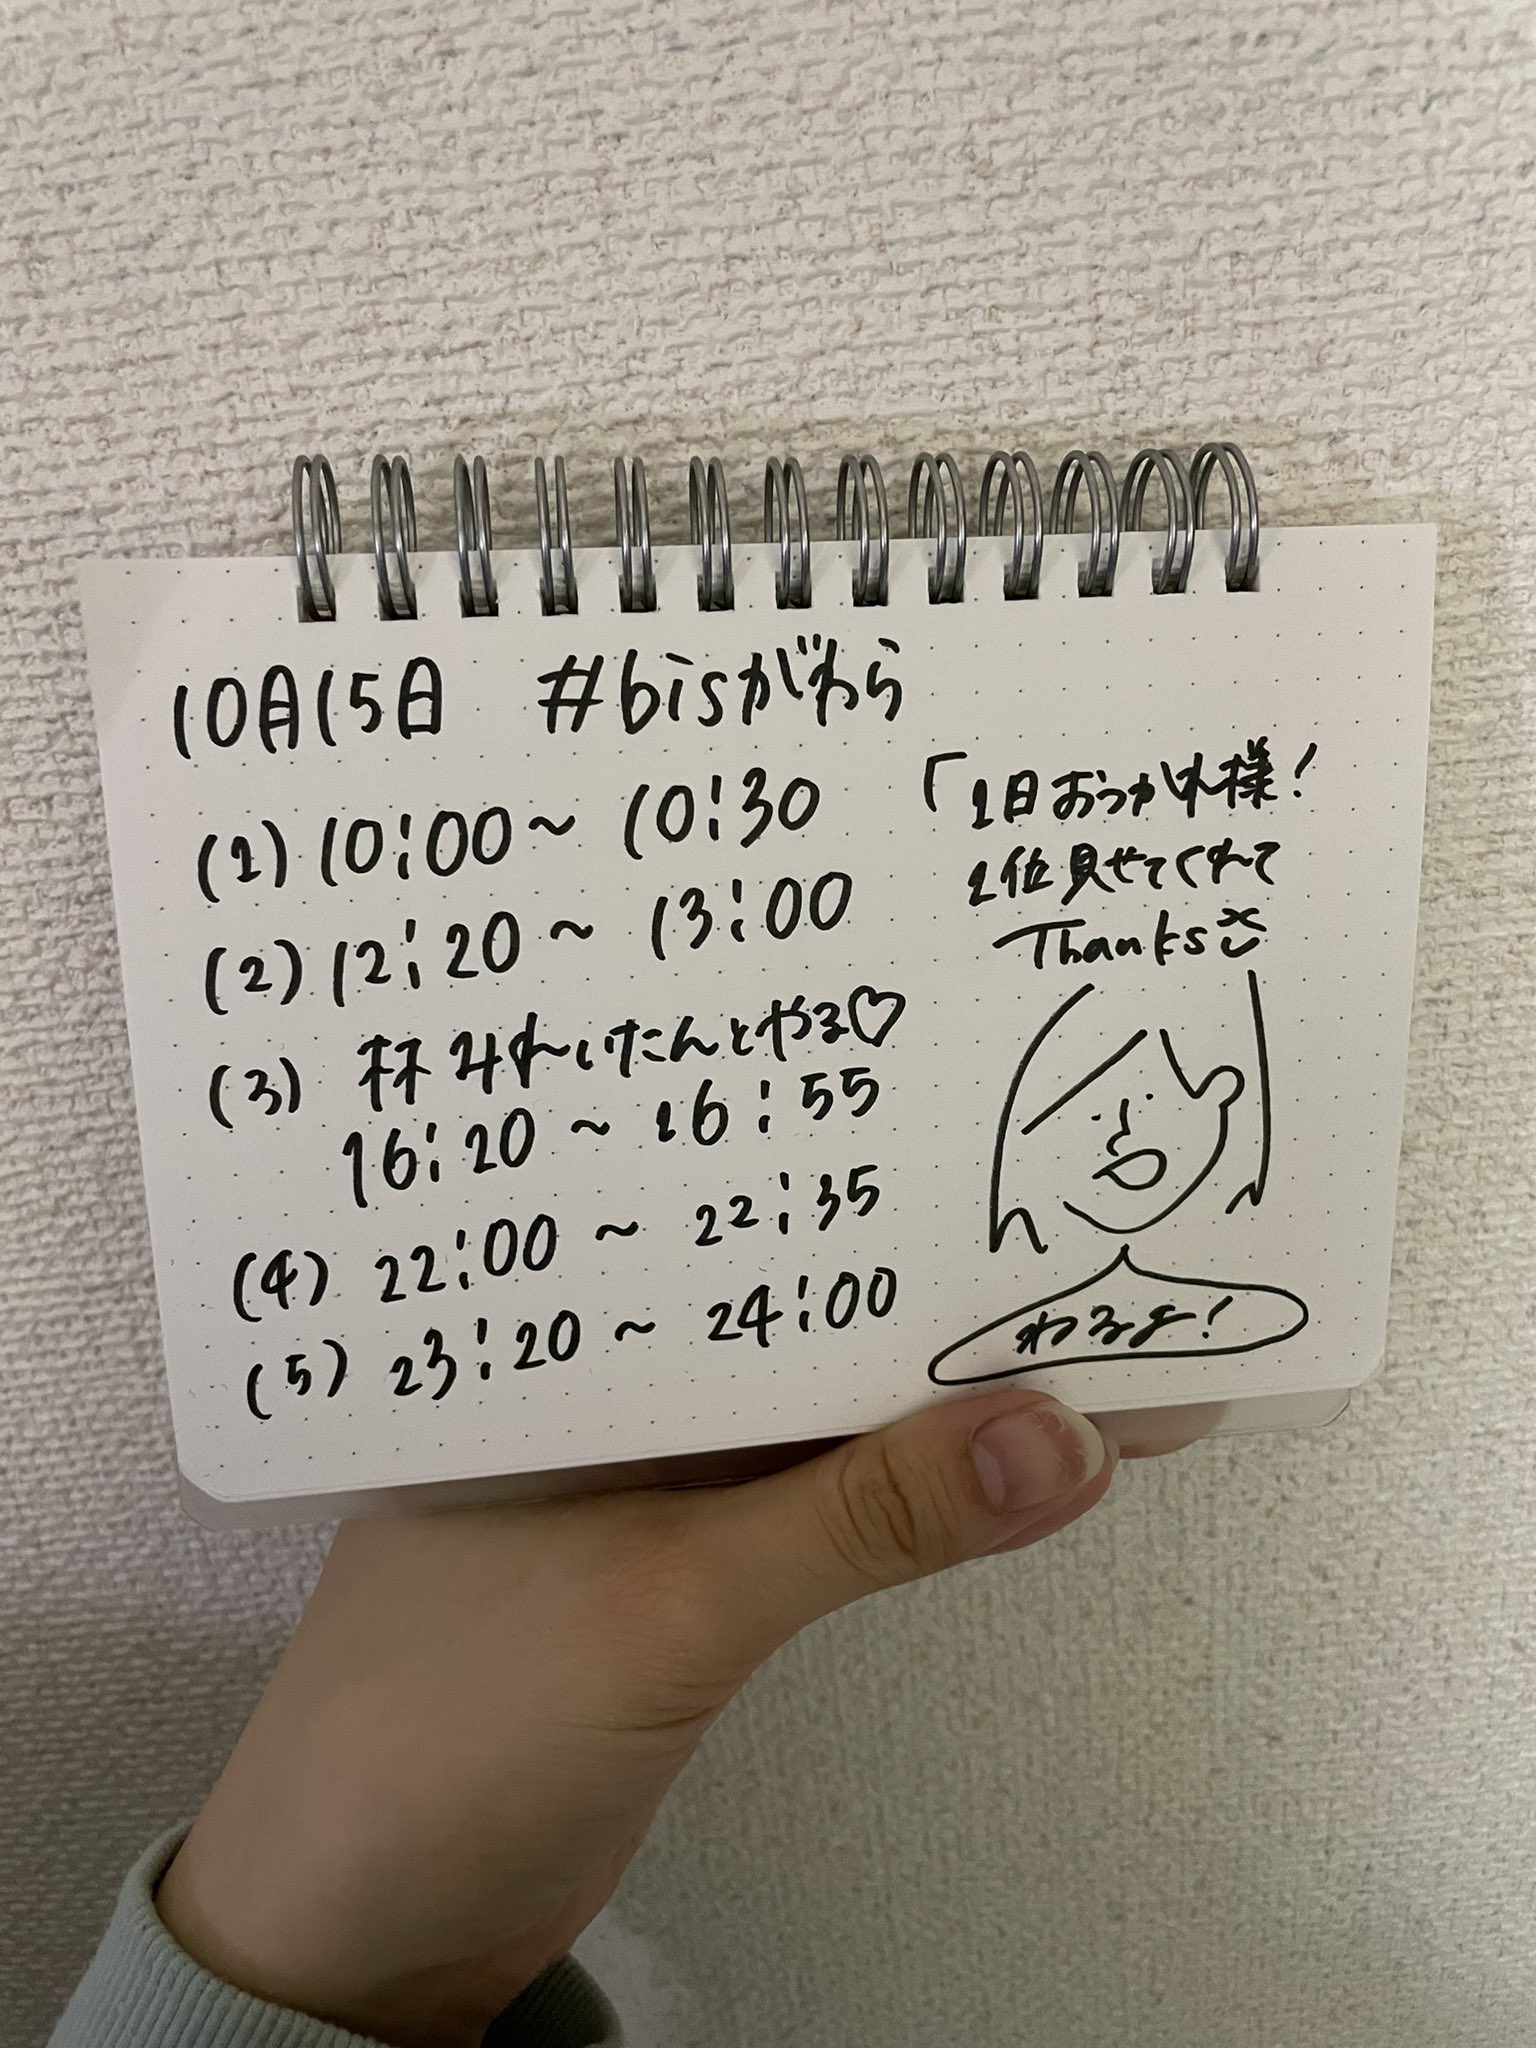 10月15日 #bisがわら
(1) 10:00~10:30
(2) 12:20~13:00
(3) 林みれいたんとやる♡
16:20~16:55
(4) 22:00~22:35
(5) 23:20~24:00
「1日おつかれ様!
1位見せてくれて
Thanks
わるよ!